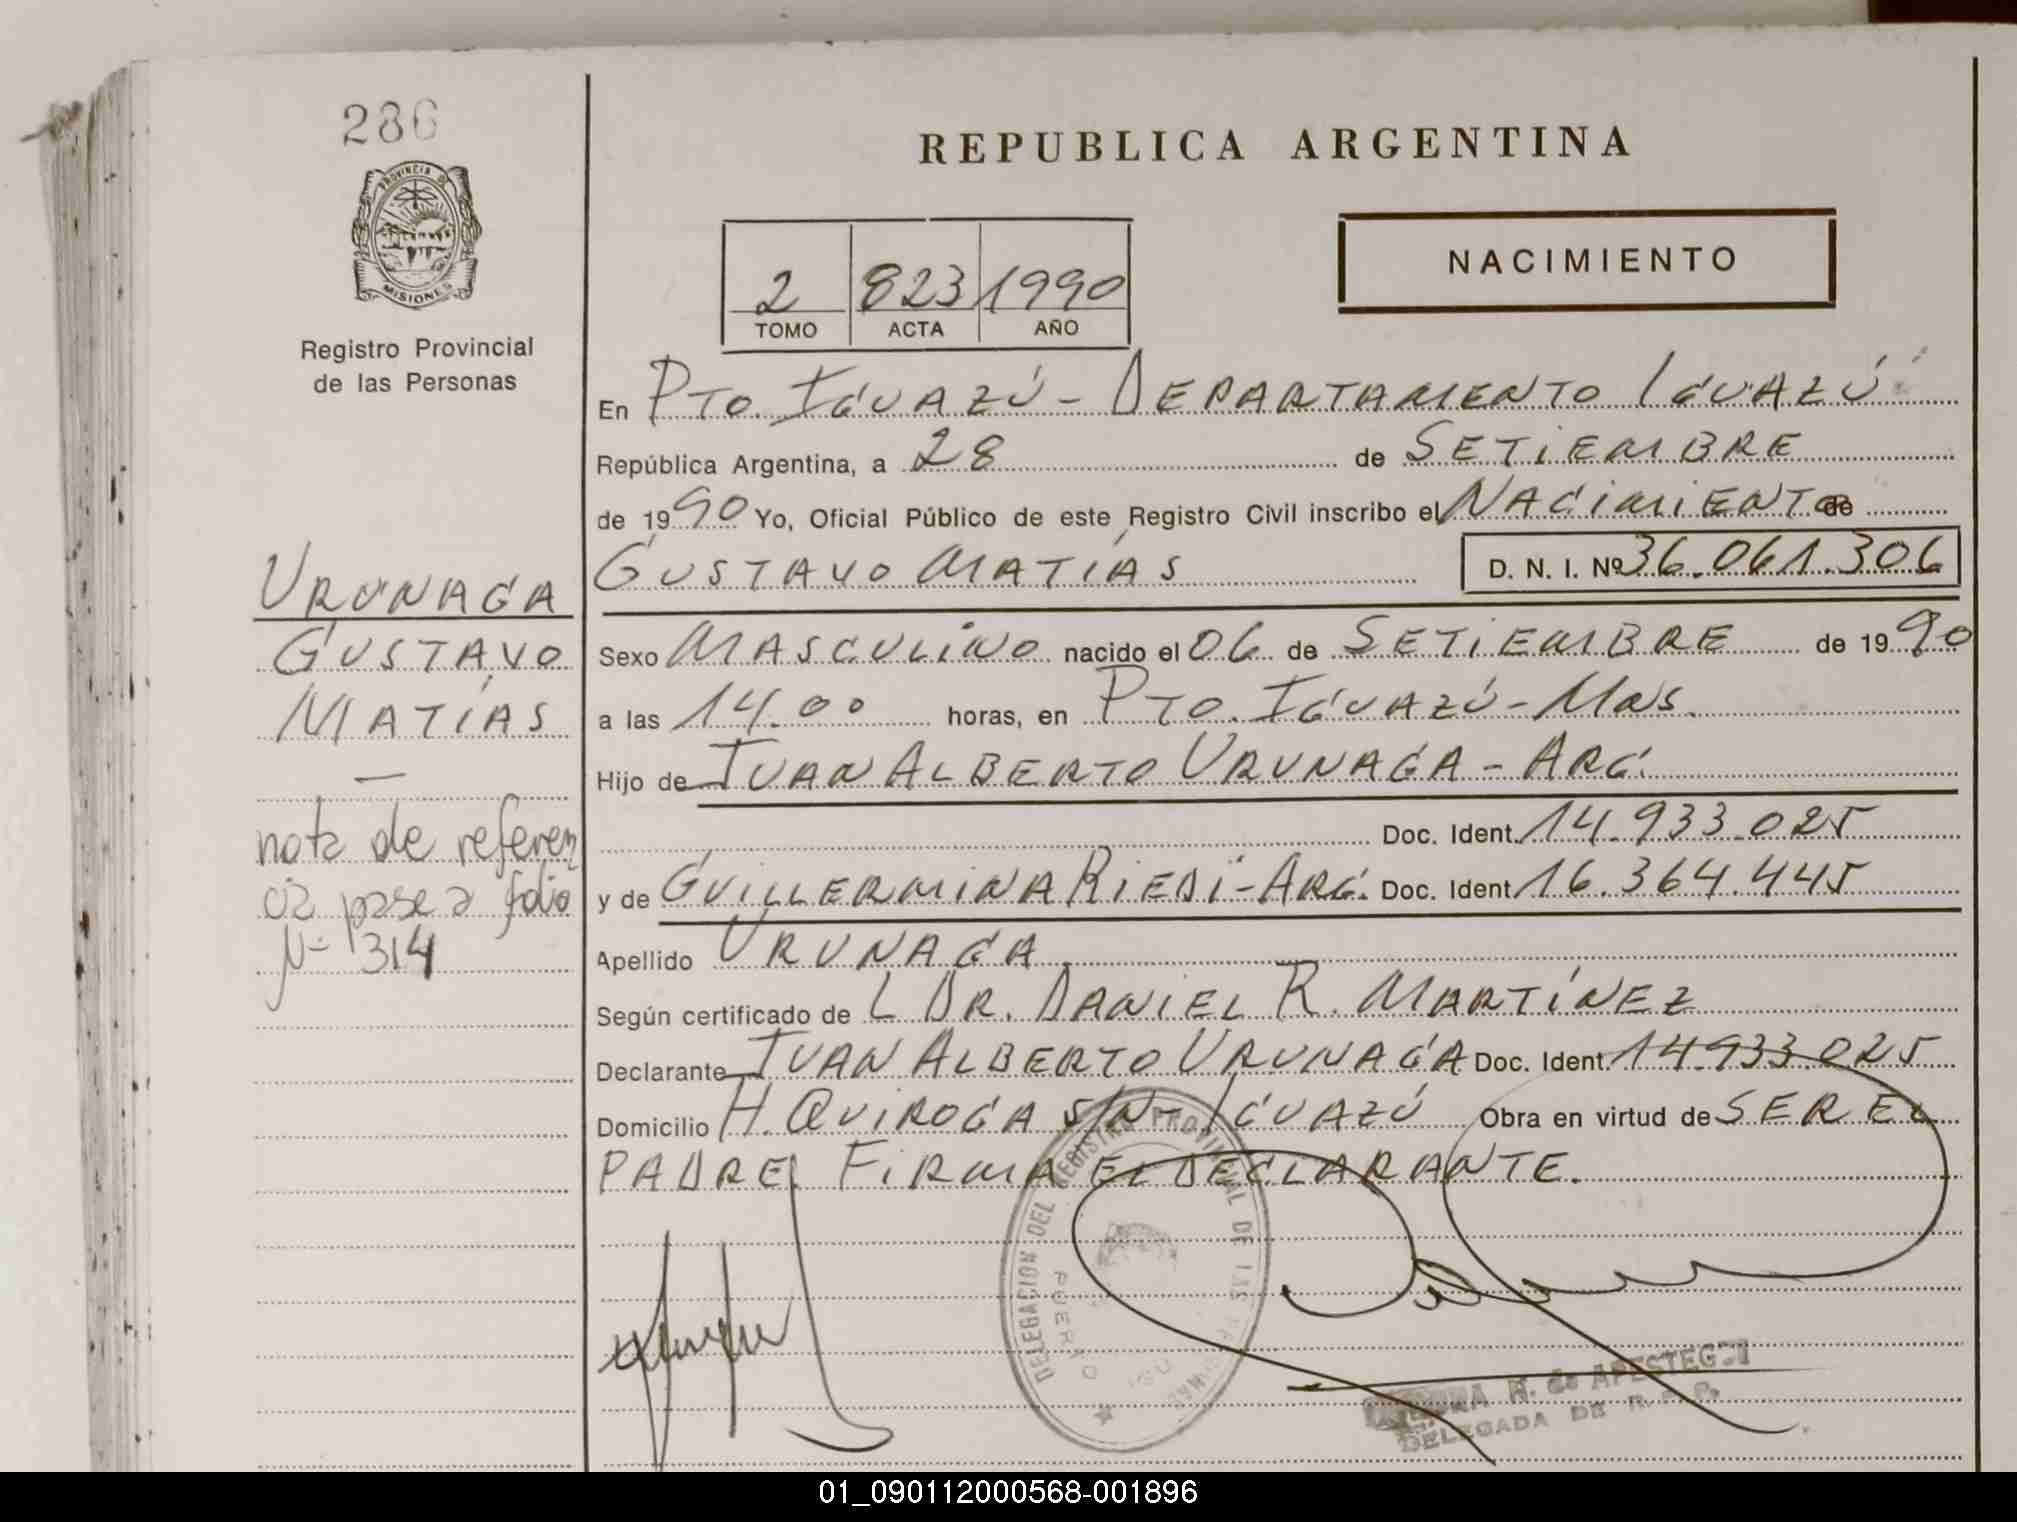 286
PROVINCIA DE
MISIONES
Registro Provincial
de las Personas
REPUBLICA ARGENTINA
NACIMIENTO
2 823 1990
TOMO ACTA AÑO
En PTO. IGUAZÚ - DEPARTAMENTO IGUAZÚ
República Argentina, a 28 de SETIEMBRE
de 1990 Yo, Oficial Público de este Registro Civil inscribo el NACIMIENTO de
GUSTAVO MATÍAS D. N. I. Nº 36.061.306
URUNAGA
GUSTAVO
MATÍAS
—
nota de referen
cia pase a folio
Nº 314
Sexo MASCULINO nacido el 06 de SETIEMBRE de 1990
a las 14.00 horas, en PTO. IGUAZÚ - Mns.
Hijo de JUAN ALBERTO URUNAGA - ARG.
Doc. Ident. 14.933.025
y de GUILLERMINA RIEDI - ARG. Doc. Ident 16.364.445
Apellido URUNAGA
Según certificado de L DR. DANIEL R. MARTÍNEZ
Declarante JUAN ALBERTO URUNAGA Doc. Ident. 14.933.025
Domicilio H. QUIROGA S/N - IGUAZÚ Obra en virtud de SER EL
PADRE. FIRMA EL DECLARANTE.
DELEGACION DEL REGISTRO PROVINCIAL DE LAS
PUERTO
N. de APESTEGUI
DELEGADA DE R. P.
01_090112000568-001896